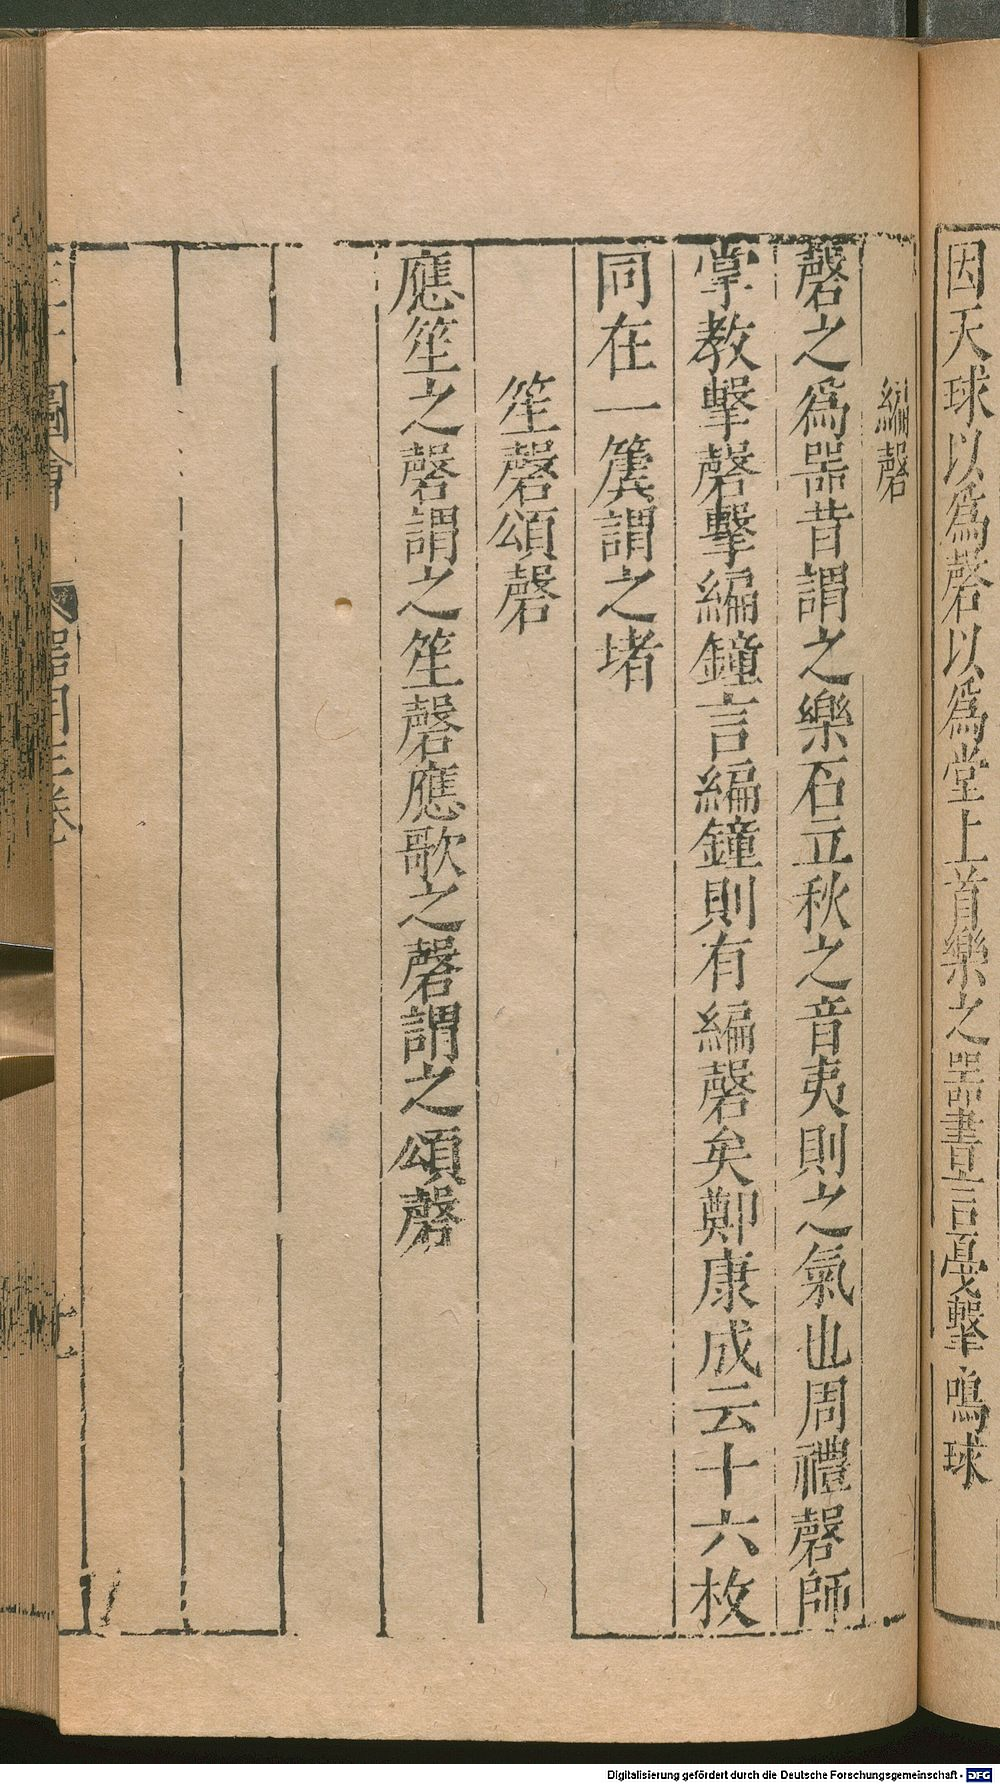 因天球以爲磬以爲堂上首樂之器書言戞擊鳴球
編磬
磬之爲器昔謂之樂石立秋之音夷則之氣也周禮磬師
掌教擊磬擊編鐘言編鐘則有編磬矣鄭康成云十六枚
同在一簴謂之堵
笙磬頌磬
應笙之磬謂之笙磬應歌之磬謂之頌磬
圖會
器用三卷
Digitalisierung gefördert durch die Deutsche Forschungsgemeinschaft - DFG